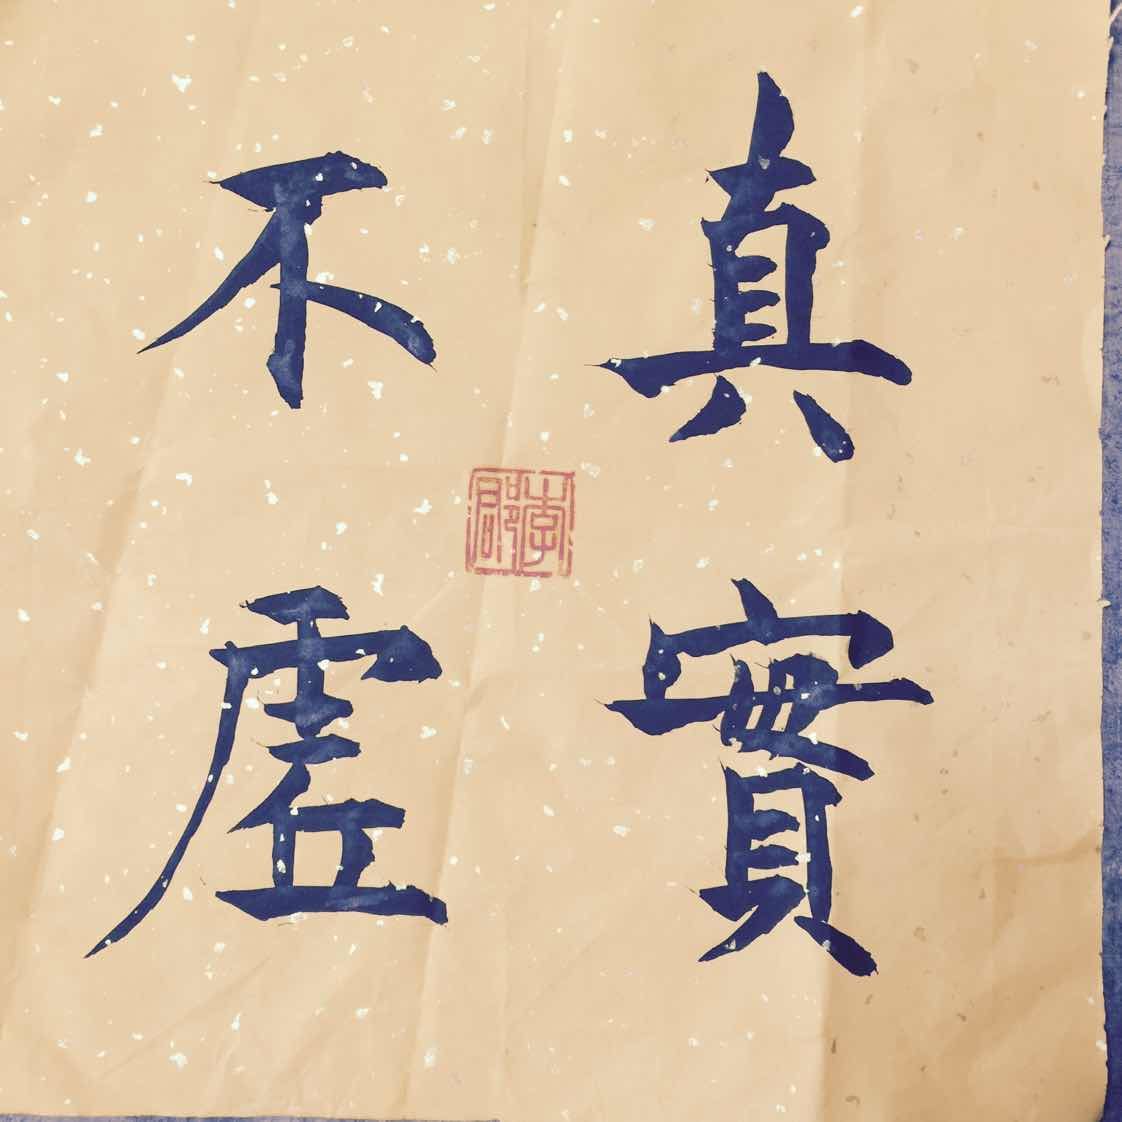 真實
不虛